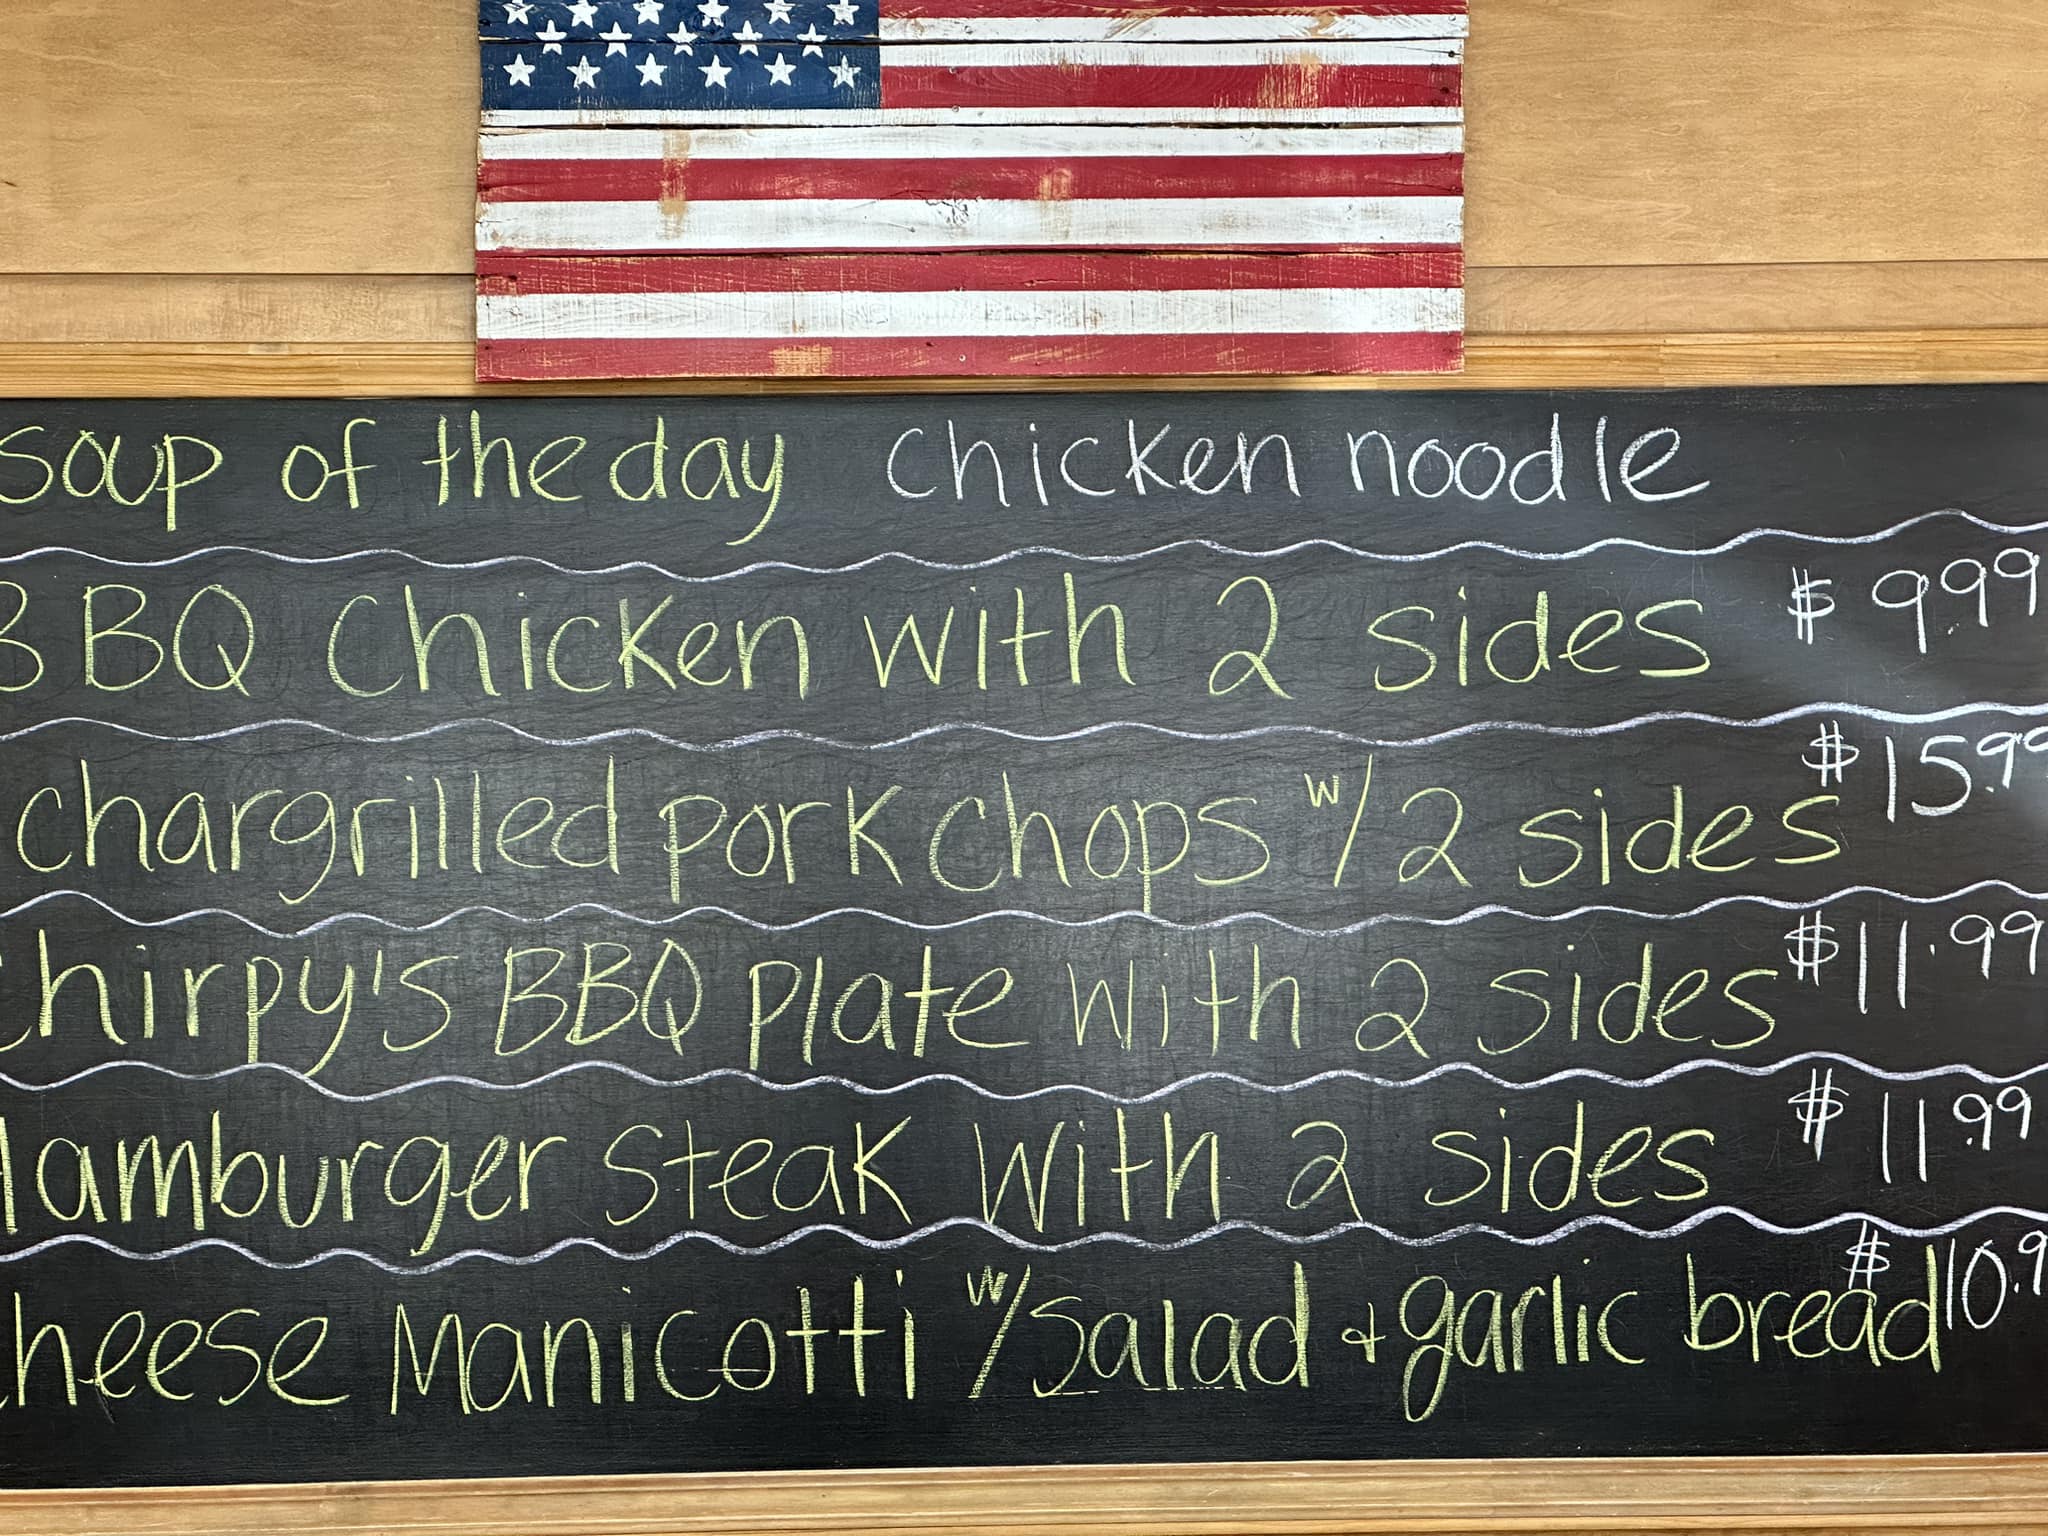 soup of the day chicken noodle
BBQ Chicken with 2 sides $9.99
chargrilled pork chops w/2 sides $15.99
Chirpy's BBQ plate with 2 sides $11.99
Hamburger steak with 2 sides $11.99
Cheese Manicotti w/salad + garlic bread $10.9